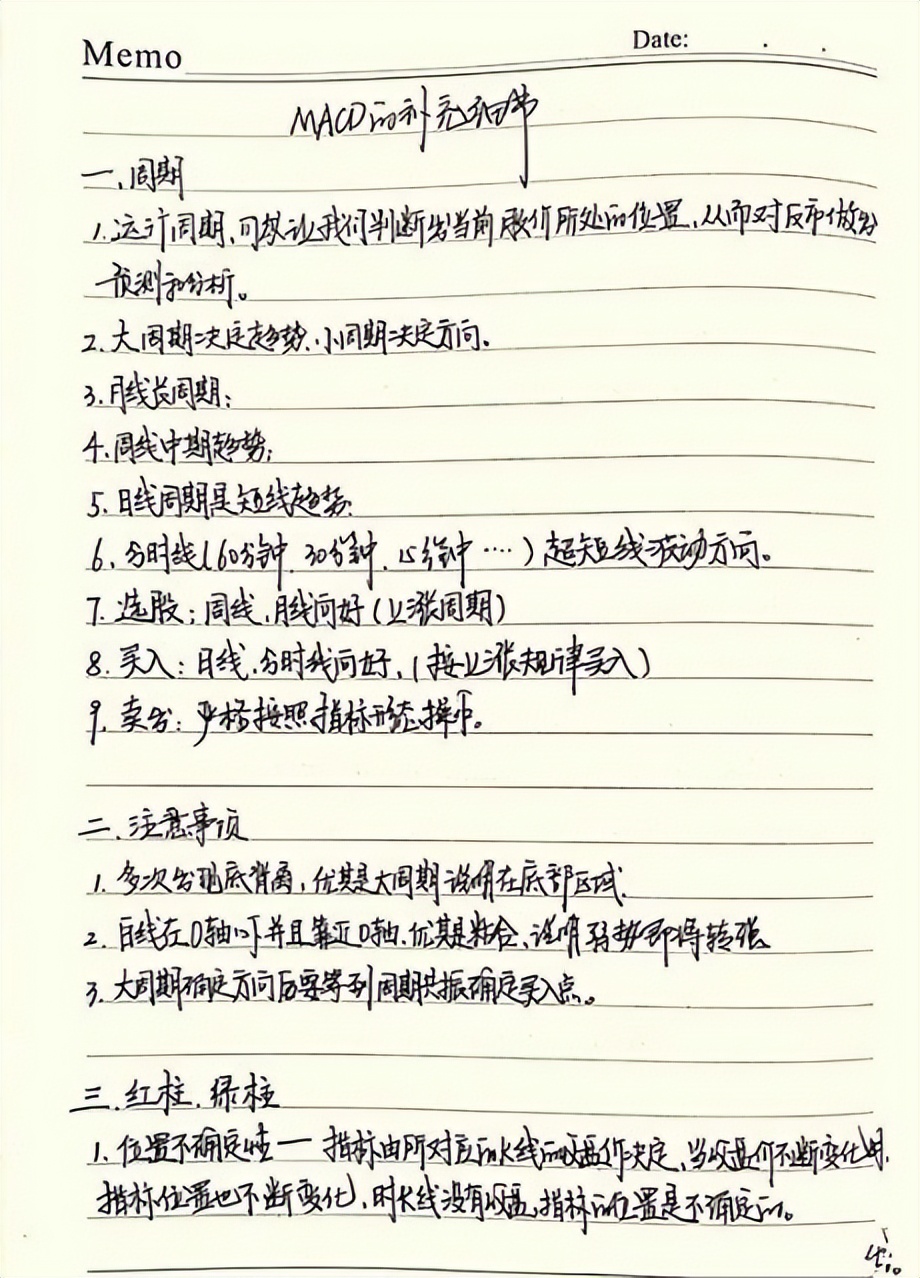 Memo
Date: . .
MACD的补充细节
一、周期
1.运行周期,可以让我们判断出当前股价所处的位置,从而对后市做出
预测和分析。
2.大周期决定趋势、小周期决定方向。
3.月线长周期;
4.周线中期趋势;
5.日线周期是短线趋势
6、分时线(60分钟、30分钟、15分钟····)超短线波动方向。
7.选股:周线、月线向好(上涨周期)
8.买入:日线、分时线向好,(按上涨规律买入)
9.卖出:严格按照指标形态操作。
二.注意事项
1.多次出现底背离,尤其是大周期说明在底部区域.
2.白线在0轴以下并且靠近0轴、尤其是粘合、说明弱势即将转强
3.大周期确定方向后要等到周期共振确定买入点。
三.红柱.绿柱
1.位置不确定性一 指标由所对应的K线的收盘价决定、当收盘价不断变化时,
指标位置也不断变化,时K线没有收盘,指标的位置是不确定的。